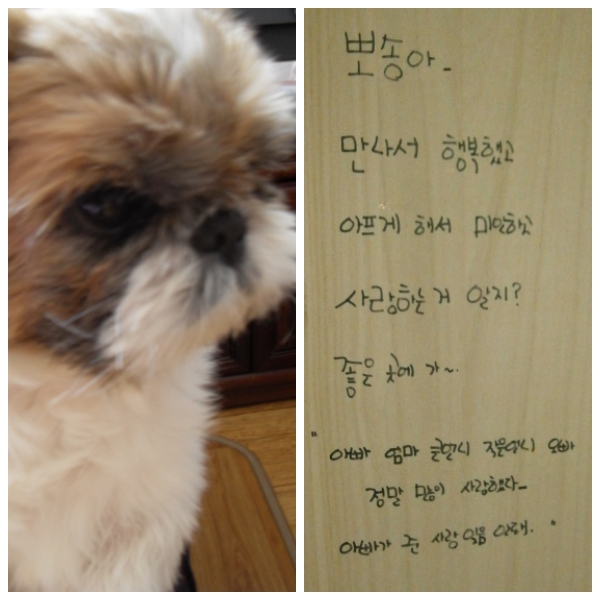 뽀송아_
만나서 행복했고
아프게 해서 미안하고
사랑하는 거 알지?
좋은 곳에 가~.
"아빠 엄마 큰언니 작은언니 오빠
정말 많이 사랑했다_
아빠가 준 사랑 잊음 안돼."